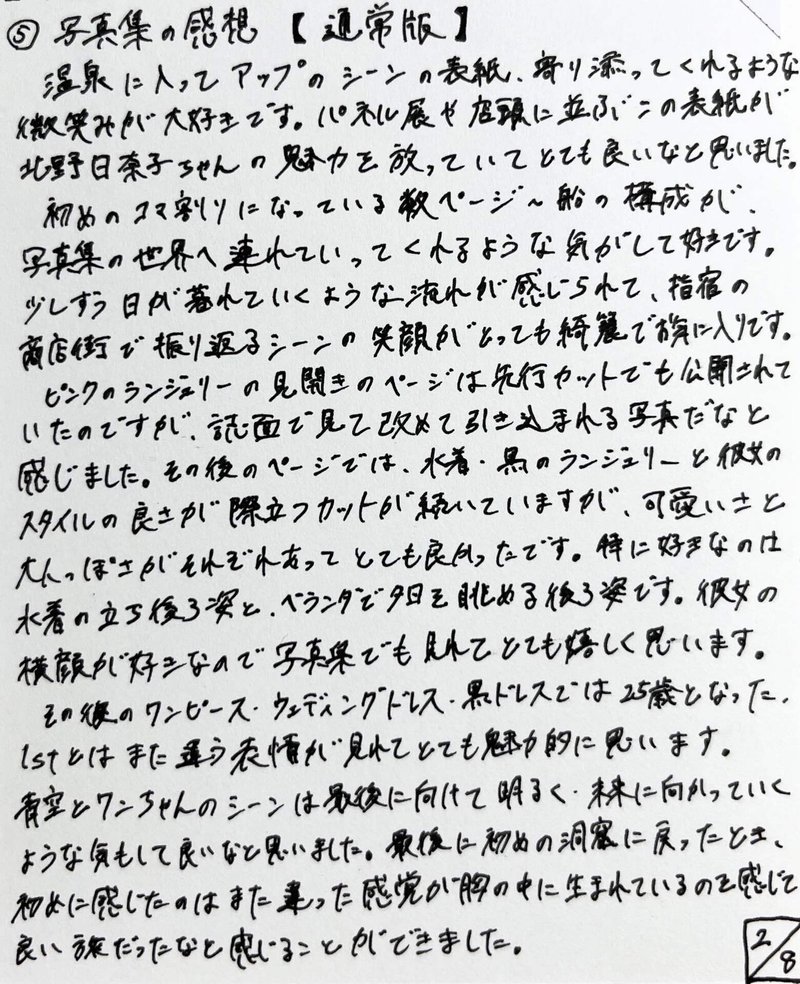 ⑤ 写真集の感想【通常版】
温泉に入ってアップのシーンの表紙、寄り添ってくれるような
微笑みが大好きです。パネル展や店頭に並ぶこの表紙が
北野日奈子ちゃんの魅力を放っていてとても良いなと思いました。
初めのコマ割りになっている数ページ〜船の構成が、
写真集の世界へ連れていってくれるような気がして好きです。
少しずつ日が暮れていくような流れが感じられて、指宿の
商店街で振り返るシーンの笑顔がとっても綺麗でお気に入りです。
ピンクのランジェリーの見開きのページは先行カットでも公開されて
いたのですが、誌面で見て改めて引き込まれる写真だなと
感じました。その後のページでは、水着・黒のランジェリーと彼女の
スタイルの良さが際立つカットが続いていますが、可愛いさと
大人っぽさがそれぞれあってとても良かったです。特に好きなのは
水着の立ち後ろ姿と、ベランダで夕日を眺める後ろ姿です。彼女の
横顔が好きなので写真集でも見れてとても嬉しく思います。
その後のワンピース・ウェディングドレス・黒ドレスでは25歳となった、
1stとはまた違う表情が見れてとても魅力的に思います。
青空とワンちゃんのシーンは最後に向けて明るく・未来に向かっていく
ような気もして良いなと思いました。最後に初めの洞窟に戻ったとき、
初めに感じたのはまた違った感覚が胸の中に生まれているのを感じて
良い旅だったなと感じることができました。
2/8